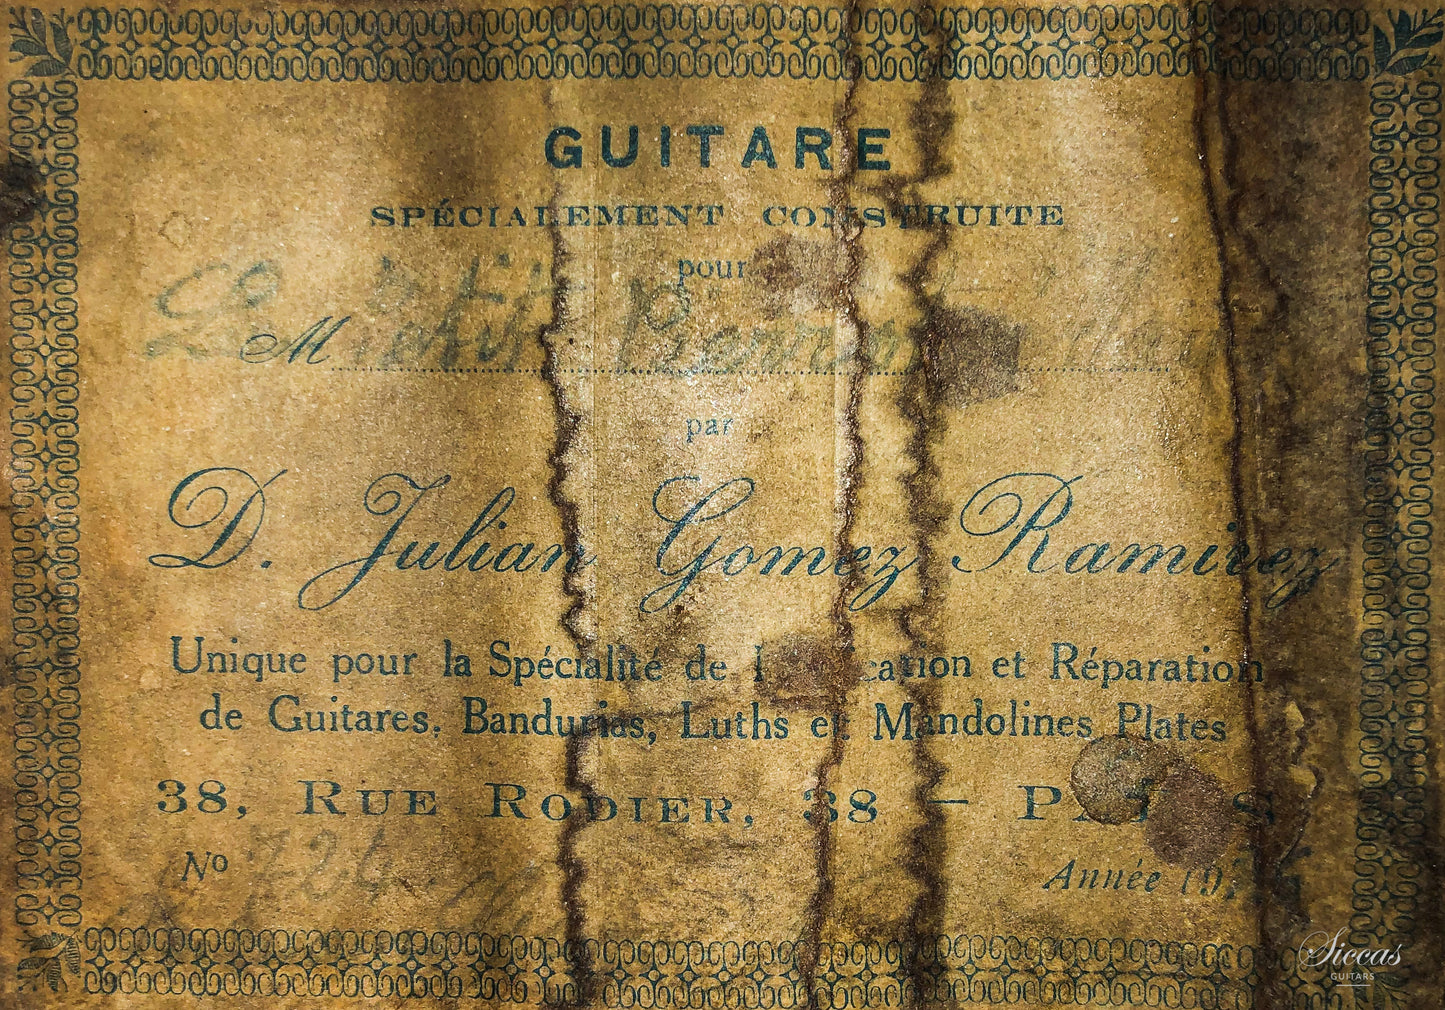 GUITARE
SPÉCIALEMENT CONSTRUITE
pour
M
par
D. Julian Gomez Ramirez
Unique pour la Spécialité de et Réparation
de Guitares, Bandurrias, Luths et Mandolines Plates
38, RUE RODIER, 38 — PARIS
Nº
Année 19
Siccas
GUITARS